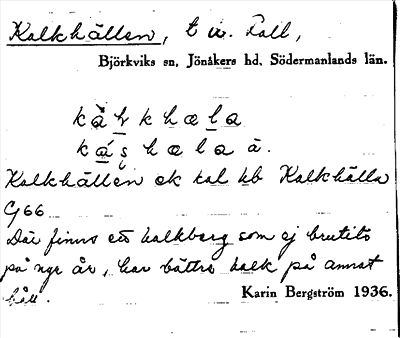 Kalkhällen, t u. Fall,
Björkviks sn, Jönåkers hd, Södermanlands län.
Kalkhällen ek kal hb Kalkhälla
G66
Där finns ett kalkberg som ej brutits
på nge år, har bättre kalk på annat
håll.
Karin Bergström 1936.